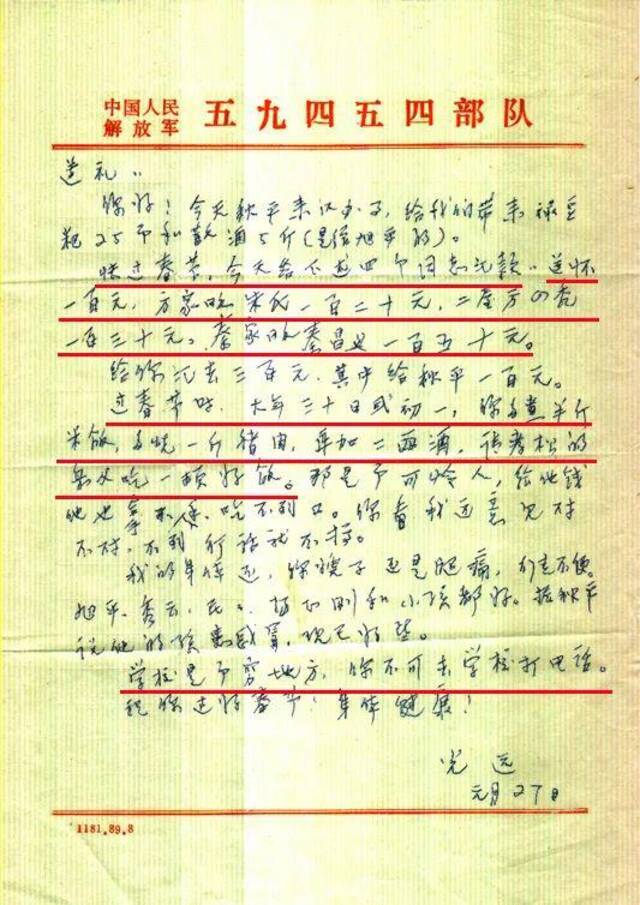 中国人民
解放军 五九四五四部队
送礼：
你好！今天秋平来汉办事，给我们带来绿豆
粑25个和散酒5斤（是给旭平的）。
快过春节，今天给下述四个同志汇款：送怀
一百元，方家的宋氏一百二十元，二屋方四香
一百三十元，秦家的秦昌 一百五十元。
给你汇去三百元，其中给秋平一百元。
过春节时，大年三十日或初一，你多煮半斤
米饭，多烧一斤猪肉，再加二两酒，请孝松的
岳父吃一顿好饭。那是个可怜人，给他钱
他也拿不 ，吃不到口。你看我这意见对
不对，不到 行话就不搞。
我的身体还，你嫂子还是腿痛，行走不便。
旭平、秀云、 和小孩都好。据秋平
说他的孩 感冒，现已好些。
学校是个穷地方，你不可去学校打电话。
祝你过好春节！身体健康！
光远
元月27日
1181.89.8